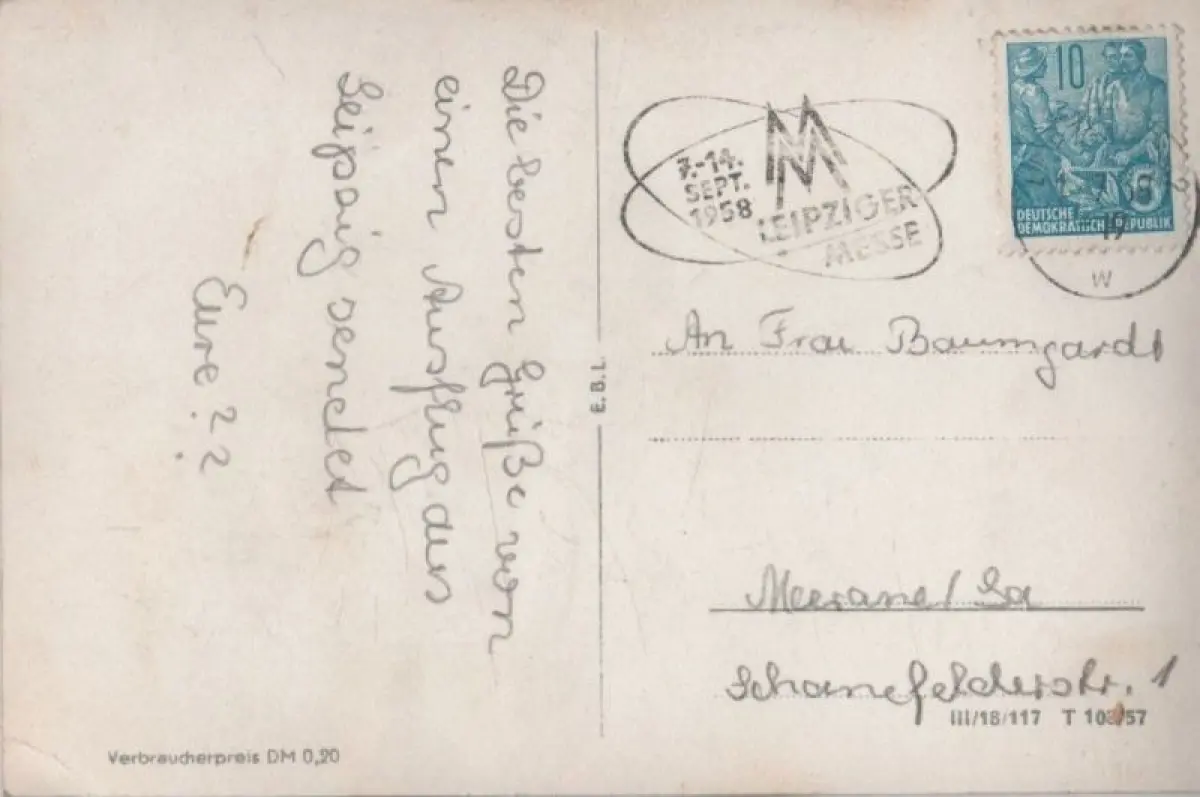 Die besten Grüße von
einen Ausflug aus
Leipzig sendet
Eure ? ?
Verbraucherpreis DM 0,20
E.B.L.
7.-14.
SEPT.
1958
MM
LEIPZIGER
MESSE
10
DEUTSCHE
DEMOKRATISCHE REPUBLIK
5
19
W
An Frau Baumgardt
Meerane/Sa
Schönefelderstr. 1
III/18/117 T